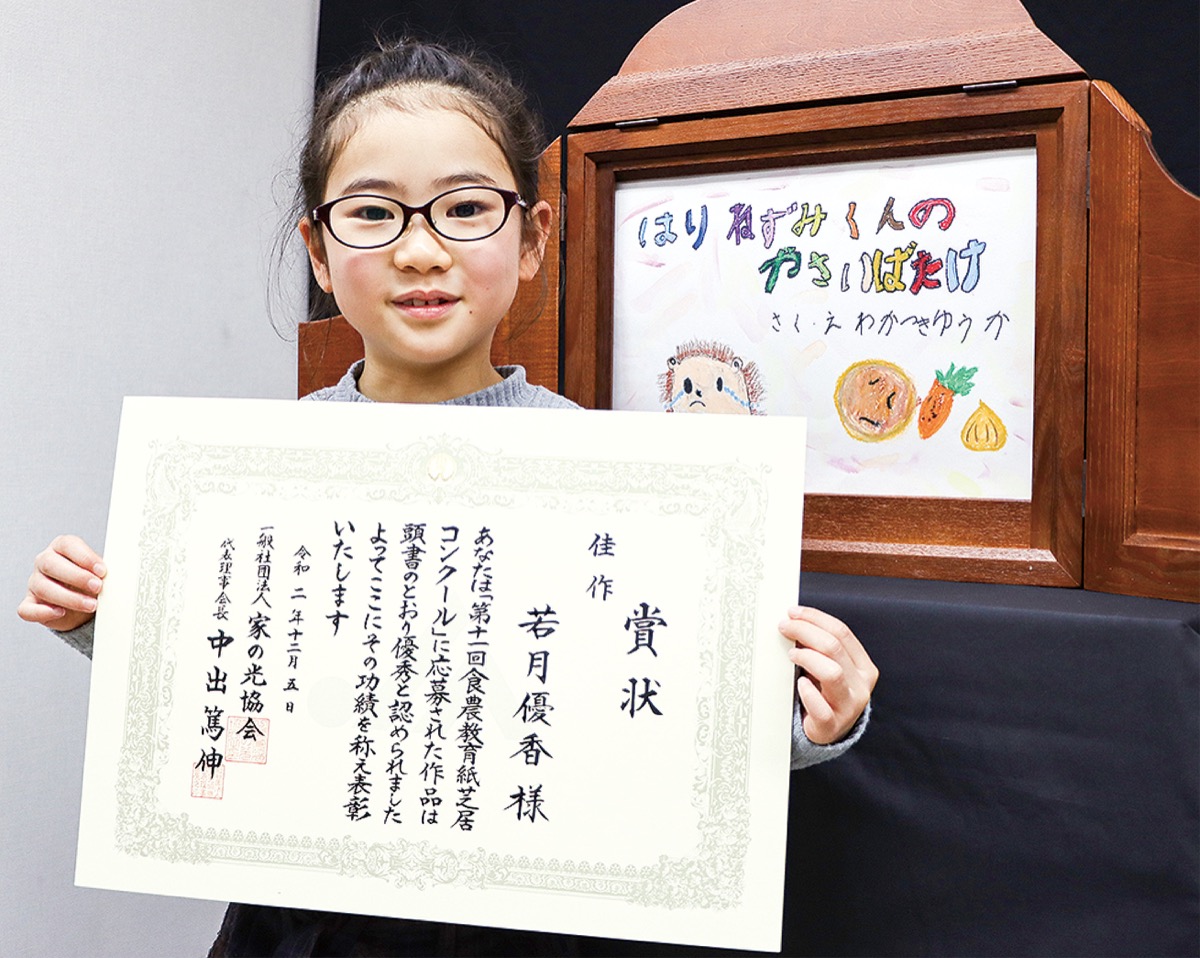 はりねずみくんの
やさいばたけ
さく・え わかつきゆうか
賞状
佳作
若月優香様
あなたは「第十一回食農教育紙芝居
コンクール」に応募された作品は
頭書のとおり優秀と認められました
よってここにその功績を称え表彰
いたします
令和二年十二月五日
一般社団法人 家の光協会
代表理事会長 中出篤伸